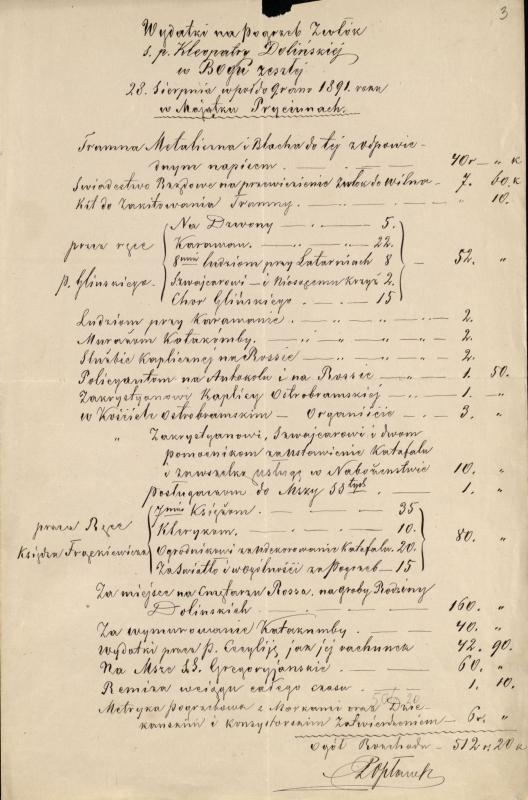 3
Wydatki na Pogrzeb Zwłók
ś. p. Kleopatry Dolińskiéj
w Bogu zeszłéj
28. Sierpnia w połdo 1891. roku
w Majątku Pryciunach.
Trumna Metaliczna i Blacha do téj z odpowie-
dnym napisem . — . — . — . — . — 40 r — „ k
Świadectwo na przewiezienie Zwłok do Wilna — 7. 60. k
Kit do Zakitowania Trumny. — . — . — „ 10.
przez ręce
p. Glińskiego.
Na Dzwony — . — 5.
Karawan. — „ — 22.
8miu ludziom przy Latarniach 8
Szwajcarowi — i Niosącemu Krzyż 2.
Chór Glińskiego . — . — 15
— 52. „
Ludziom przy Karawanie . — „ — „ — 2.
Murarzom Katakomby. — „ — „ — 2.
Służbie Kaplicznéj na Rossie — „ — 2.
Policyantom na Antokolu i na Rossie — „ — 1. 50.
Zakrystyanowi Kaplicy Ostrobramskiéj — . — 1. —
w Kościele Ostrobramskim — Organiście — . — 3. „
„ Zakrystyanowi, Szwajcarowi i dwom
pomocnikom za ustawienie Katafalu
i za wszelką usługę w Nabożeństwie 10. „
Posługaczom do Mszy — . — 1. „
przez Ręce
Księdza Frąckiewicza
7miu Księżom . — . — 35
Klerykom. — . — 10.
Ogrodnikowi za udekorowanie Katafalu. 20.
Za Światło i wogólności za Pogrzeb — 15
80. „
Za miejsce na Cmętarzu Rossa, na groby Rodziny
Dolińskich . — . — . — . — 160. „
Za wymurowanie Katakumby . — . — 40. „
Wydatki przez P. Cecyliję jak jéj rachunek 42. 90.
Na Msze ŚŚ. Gregoryjańskie — . — 60. „
Remiza wciągu całego czasu . — 1. 10.
Metryka pogrzebowa z Markami oraz Dzie-
kańskim i konsystorskim Zatwierdzeniem — 6 r. „
Ogół Rozchodu — 512 r. 20 k